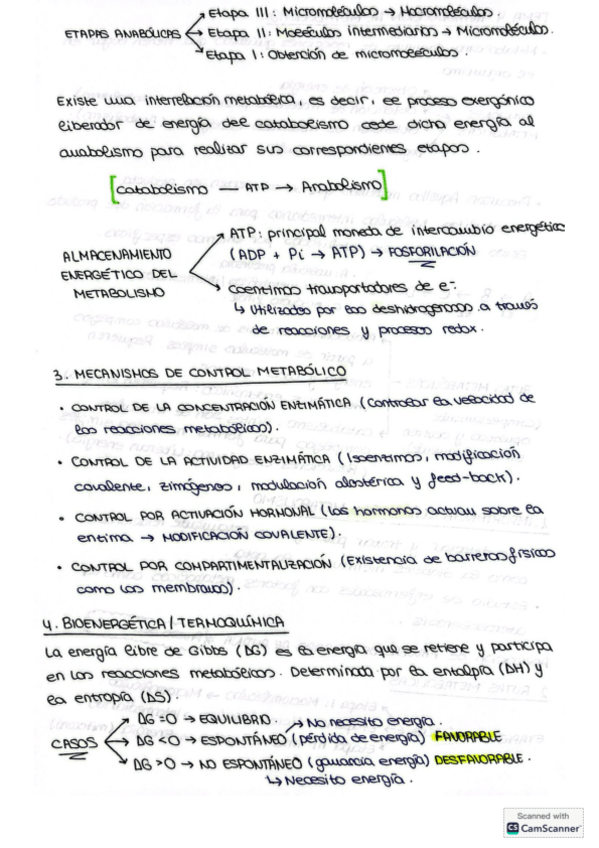 Etapa III: Micromoléculas → Macromoléculas.
ETAPAS ANABÓLICAS Etapa II: Moléculas intermediarias → Micromoléculas.
Etapa I: Obtención de micromoléculas.
Existe una interrelación metabólica, es decir, el proceso exergónico
liberador de energía del catabolismo cede dicha energía al
anabolismo para realizar sus correspondientes etapas.
[catabolismo — ATP → Anabolismo]
ATP: principal moneda de intercambio energético
ALMACENAMIENTO (ADP + Pi → ATP) → FOSFORILACIÓN
ENERGÉTICO DEL
METABOLISMO Coenzimas transportadores de e⁻:
↳ Utilizados por las deshidrogenasas a través
de reacciones y procesos redox.
3. MECANISMOS DE CONTROL METABÓLICO
• CONTROL DE LA CONCENTRACIÓN ENZIMÁTICA (Controlar la velocidad de
las reacciones metabólicas).
• CONTROL DE LA ACTIVIDAD ENZIMÁTICA (Isoenzimas, modificación
covalente, zimógenos, modulación alostérica y feed-back).
• CONTROL POR ACTIVACIÓN HORMONAL (las hormonas actuan sobre la
enzima → MODIFICACIÓN COVALENTE).
• CONTROL POR COMPARTIMENTALIZACIÓN (Existencia de barreras físicas
como las membranas).
4. BIOENERGÉTICA / TERMOQUÍMICA
La energía libre de Gibbs (ΔG) es la energía que se retiene y participa
en las reacciones metabólicas. Determinada por la entalpía (ΔH) y
la entropía (ΔS).
ΔG =0 → EQUILIBRIO. → No necesita energía.
CASOS ΔG <0 → ESPONTÁNEO (pérdida de energía) FAVORABLE
ΔG >0 → NO ESPONTÁNEO (ganancia energía) DESFAVORABLE.
↳ Necesita energía.
Scanned with
CS CamScanner